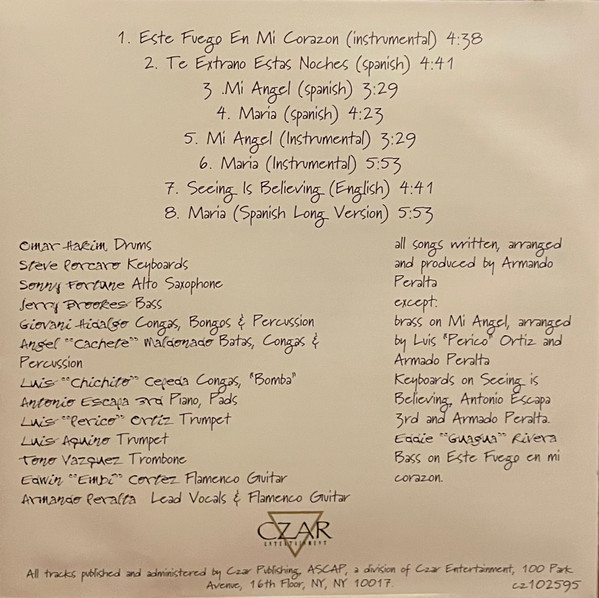 1. Este Fuego En Mi Corazon (instrumental) 4:38
2. Te Extrano Estas Noches (spanish) 4:41
3 .Mi Angel (spanish) 3:29
4. Maria (spanish) 4:23
5. Mi Angel (Instrumental) 3:29
6. Maria (Instrumental) 5:53
7. Seeing Is Believing (English) 4:41
8. Maria (Spanish Long Version) 5:53
Omar Hakim Drums
Steve Porcaro Keyboards
Sonny Fortune Alto Saxophone
Jerry Brookes Bass
Giovani Hidalgo Congas, Bongos & Percussion
Angel ""Cachete" Maldonado Batas, Congas &
Percussion
Luis ""Chichito" Cepeda Congas, "Bomba"
Antonio Escapa 3rd Piano, Pads
Luis ""Perico" Ortiz Trumpet
Luis Aquino Trumpet
Tono Vazquez Trombone
Edwin ""Embi" Cortez Flamenco Guitar
Armando Peralta Lead Vocals & Flamenco Guitar
all songs written, arranged
and produced by Armando
Peralta
except:
brass on Mi Angel, arranged
by Luis "Perico" Ortiz and
Armado Peralta
Keyboards on Seeing is
Believing, Antonio Escapa
3rd and Armado Peralta.
Eddie ""Guagua" Rivera
Bass on Este Fuego en mi
corazon.
CZAR
ENTERTAINMENT
All tracks published and administered by Czar Publishing, ASCAP, a division of Czar Entertainment, 100 Park
Avenue, 16th Floor, NY, NY 10017.
cz102595